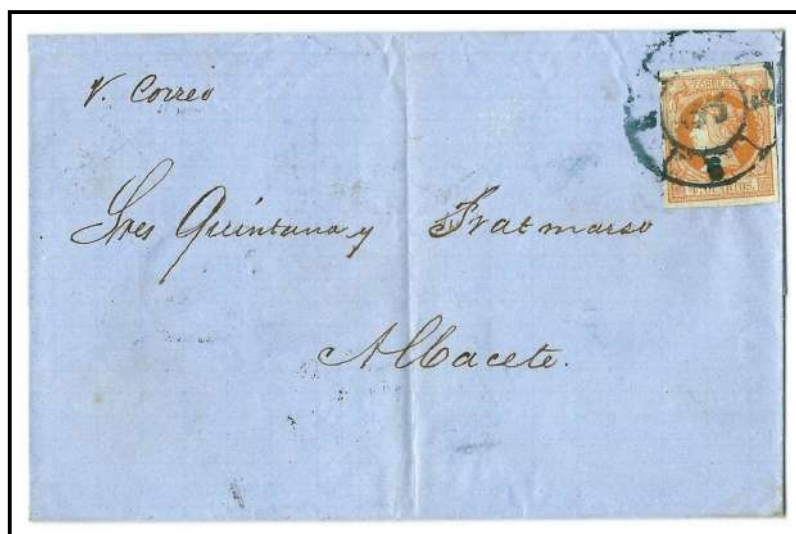 V. Correo
CORREOS
Sres Quintana y Fratmarso
Albacete.